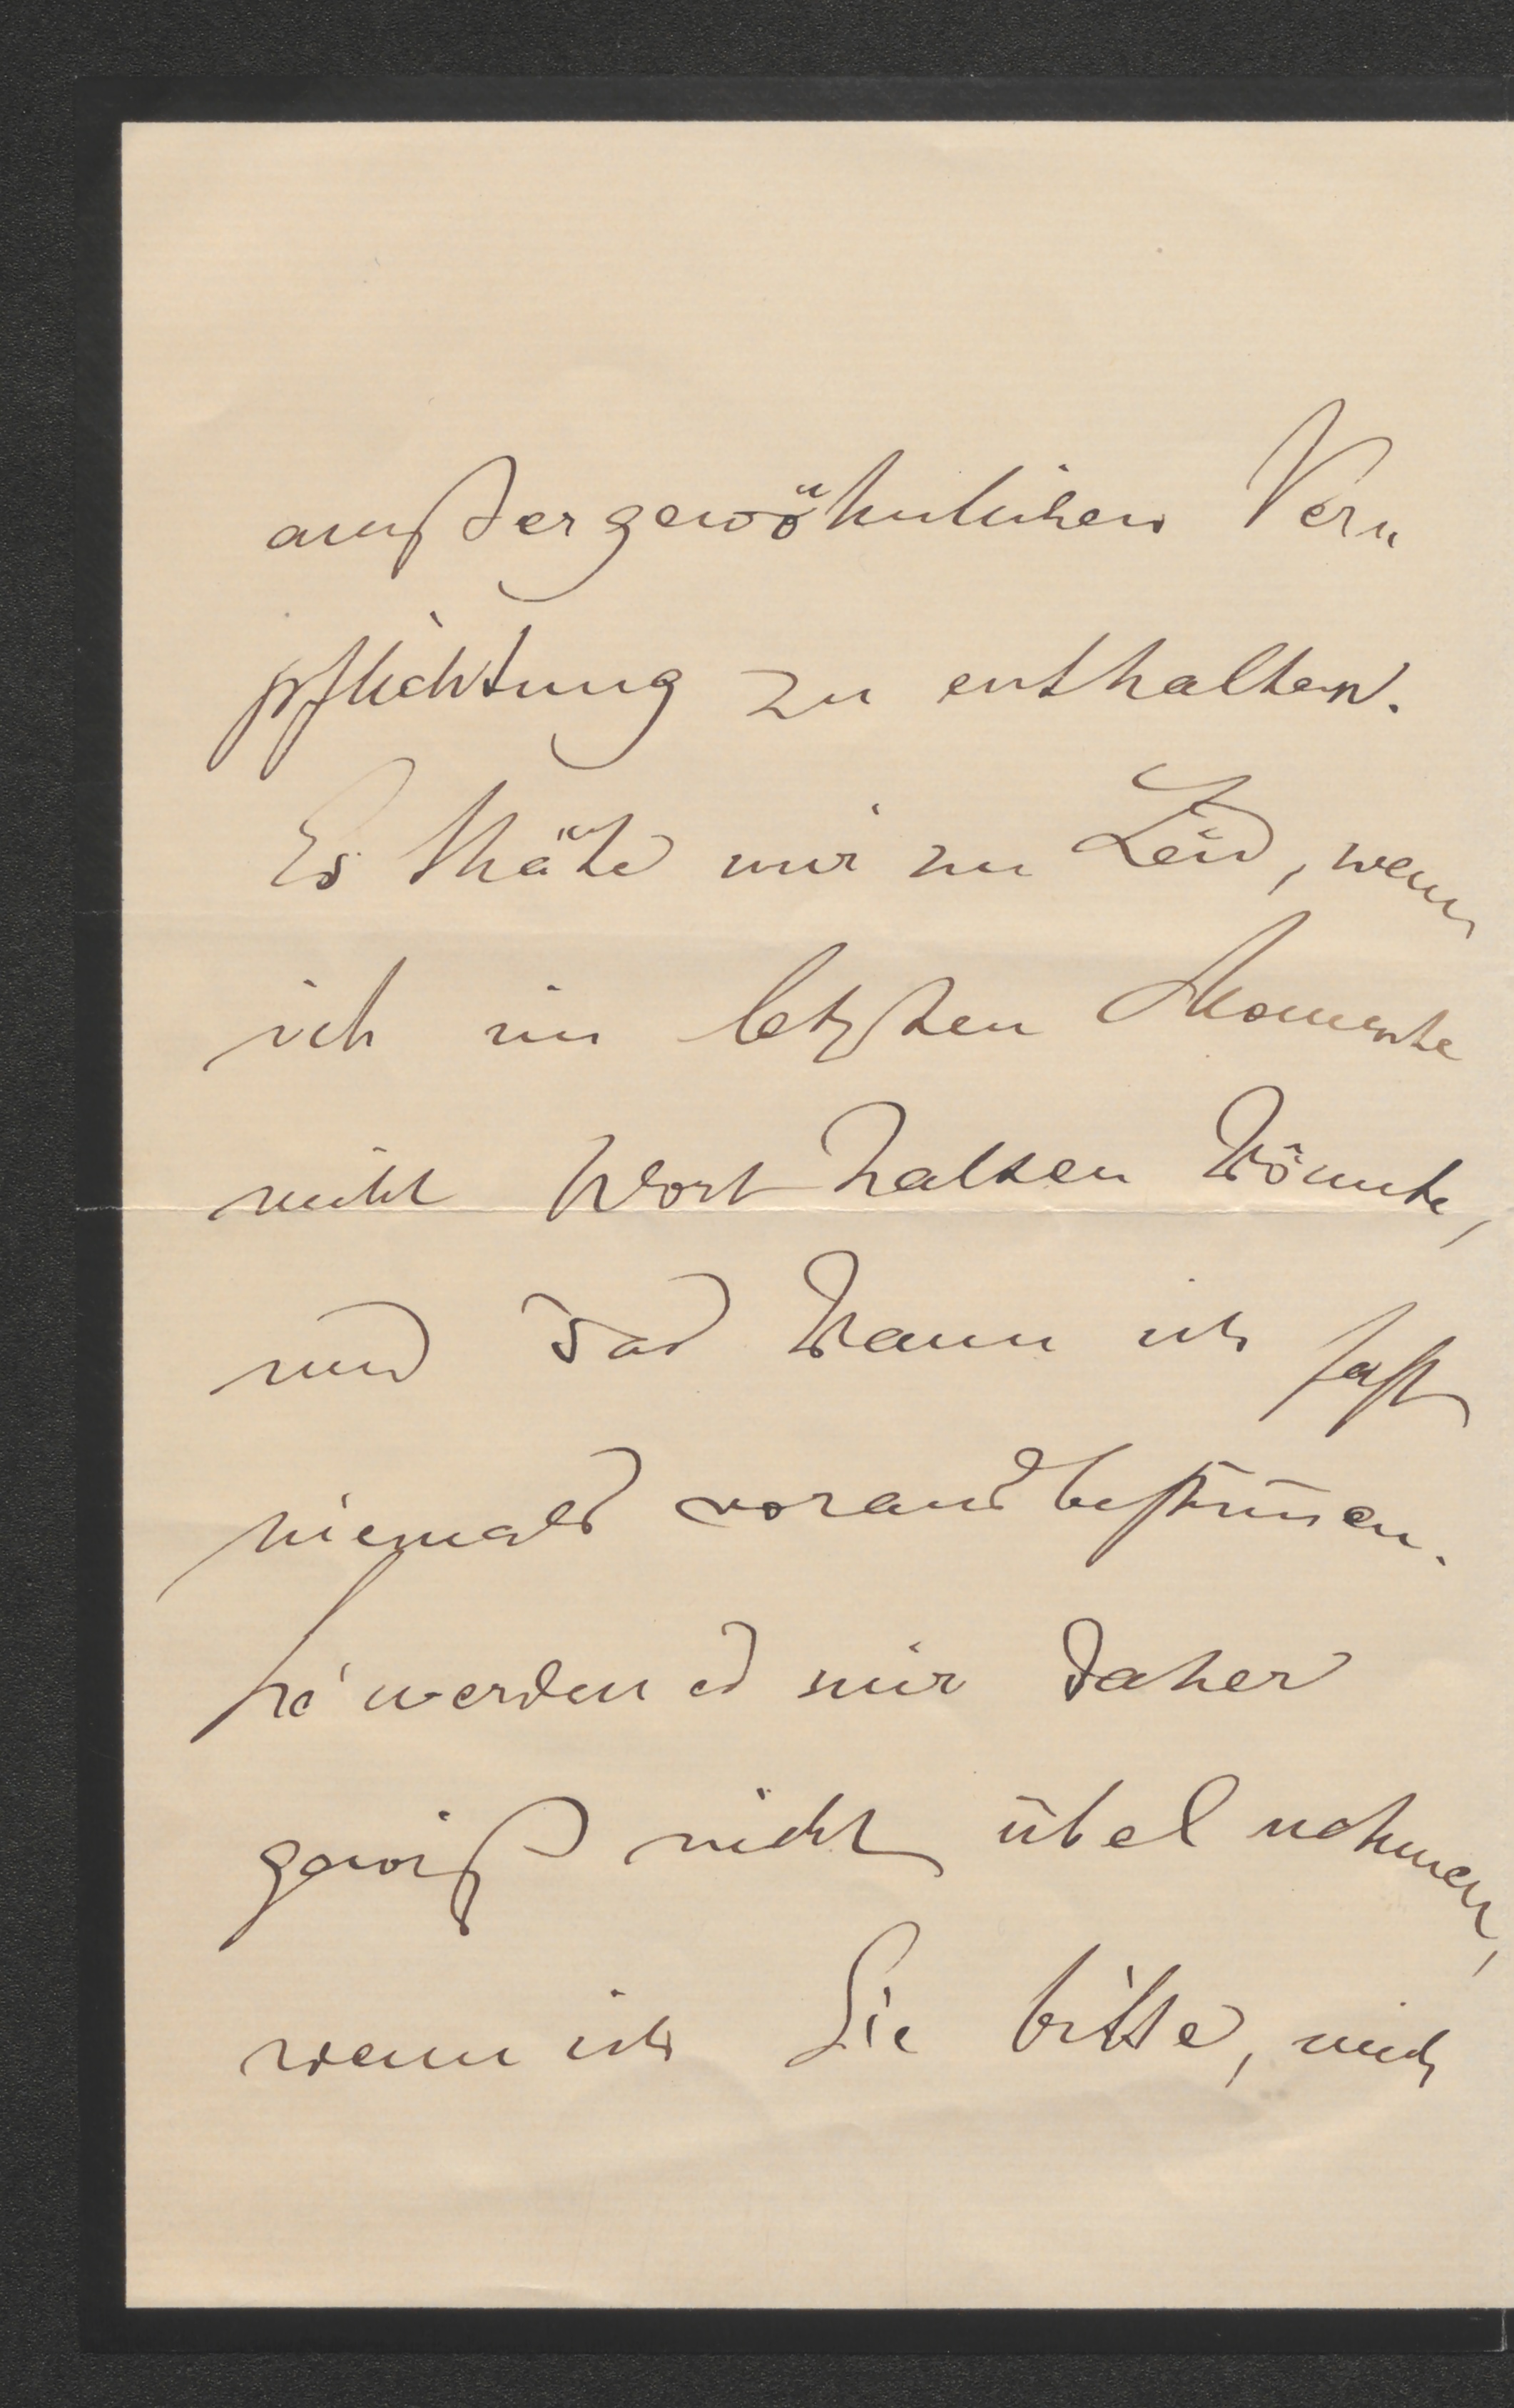 außergewöhnlichen Ver„
pflichtung zu enthalten.
Es thäte mir zu Leid, wenn
ich im letzten Momente
nicht Wort halten könnte,
und das kann ich fast
niemals vorausbestim̄en.
Sie werden es mir daher
gewiß nicht übel nehmen,
wenn ich Sie bitte, mich